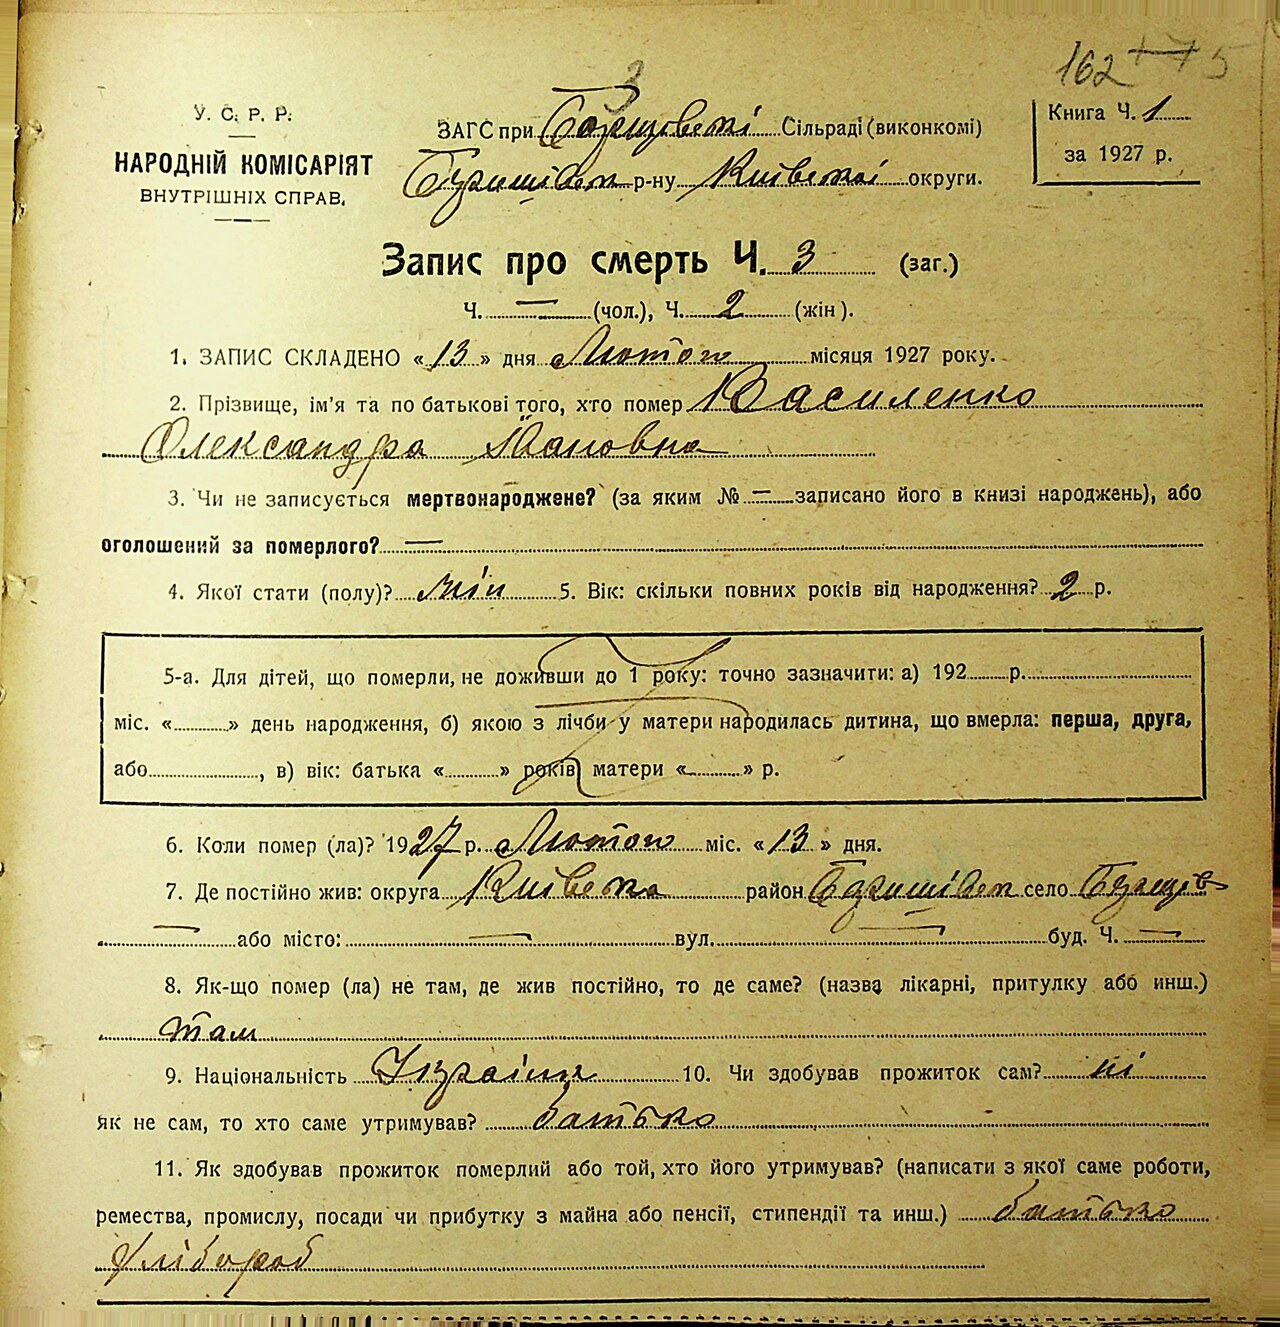 162
3
У. С. Р. Р.
НАРОДНІЙ КОМІСАРІЯТ
ВНУТРІШНІХ СПРАВ.
ЗАГС при Борщовскі Сільраді (виконкомі)
р-ну Київскої округи.
Книга Ч. 1
за 1927 р.
Запис про смерть Ч. 3 (заг.)
Ч. — (чол.), Ч. 2 (жін).
1. ЗАПИС СКЛАДЕНО «13» дня Лютого місяця 1927 року.
2. Прізвище, ім'я та по батькові того, хто помер Василенко
Олександра Йвановна
3. Чи не записується мертвонароджене? (за яким № — записано його в книзі народжень), або
оголошений за померлого? —
4. Якої стати (полу)? жін 5. Вік: скільки повних років від народження? 2 р.
5-а. Для дітей, що померли, не доживши до 1 року: точно зазначити: а) 192 р.
міс. « » день народження, б) якою з лічби у матери народилась дитина, що вмерла: перша, друга,
або , в) вік: батька « » років матери « » р.
6. Коли помер (ла)? 1927 р. Лютого міс. «13» дня.
7. Де постійно жив: округа Київска район село
— або місто: — вул. — буд. Ч. —
8. Як-що помер (ла) не там, де жив постійно, то де саме? (назва лікарні, притулку або инш.)
там
9. Національність Україн 10. Чи здобував прожиток сам? ні
як не сам, то хто саме утримував? батько
11. Як здобував прожиток померлий або той, хто його утримував? (написати з якої саме роботи,
ремества, промислу, посади чи прибутку з майна або пенсії, стипендії та инш.) батько
хлібороб